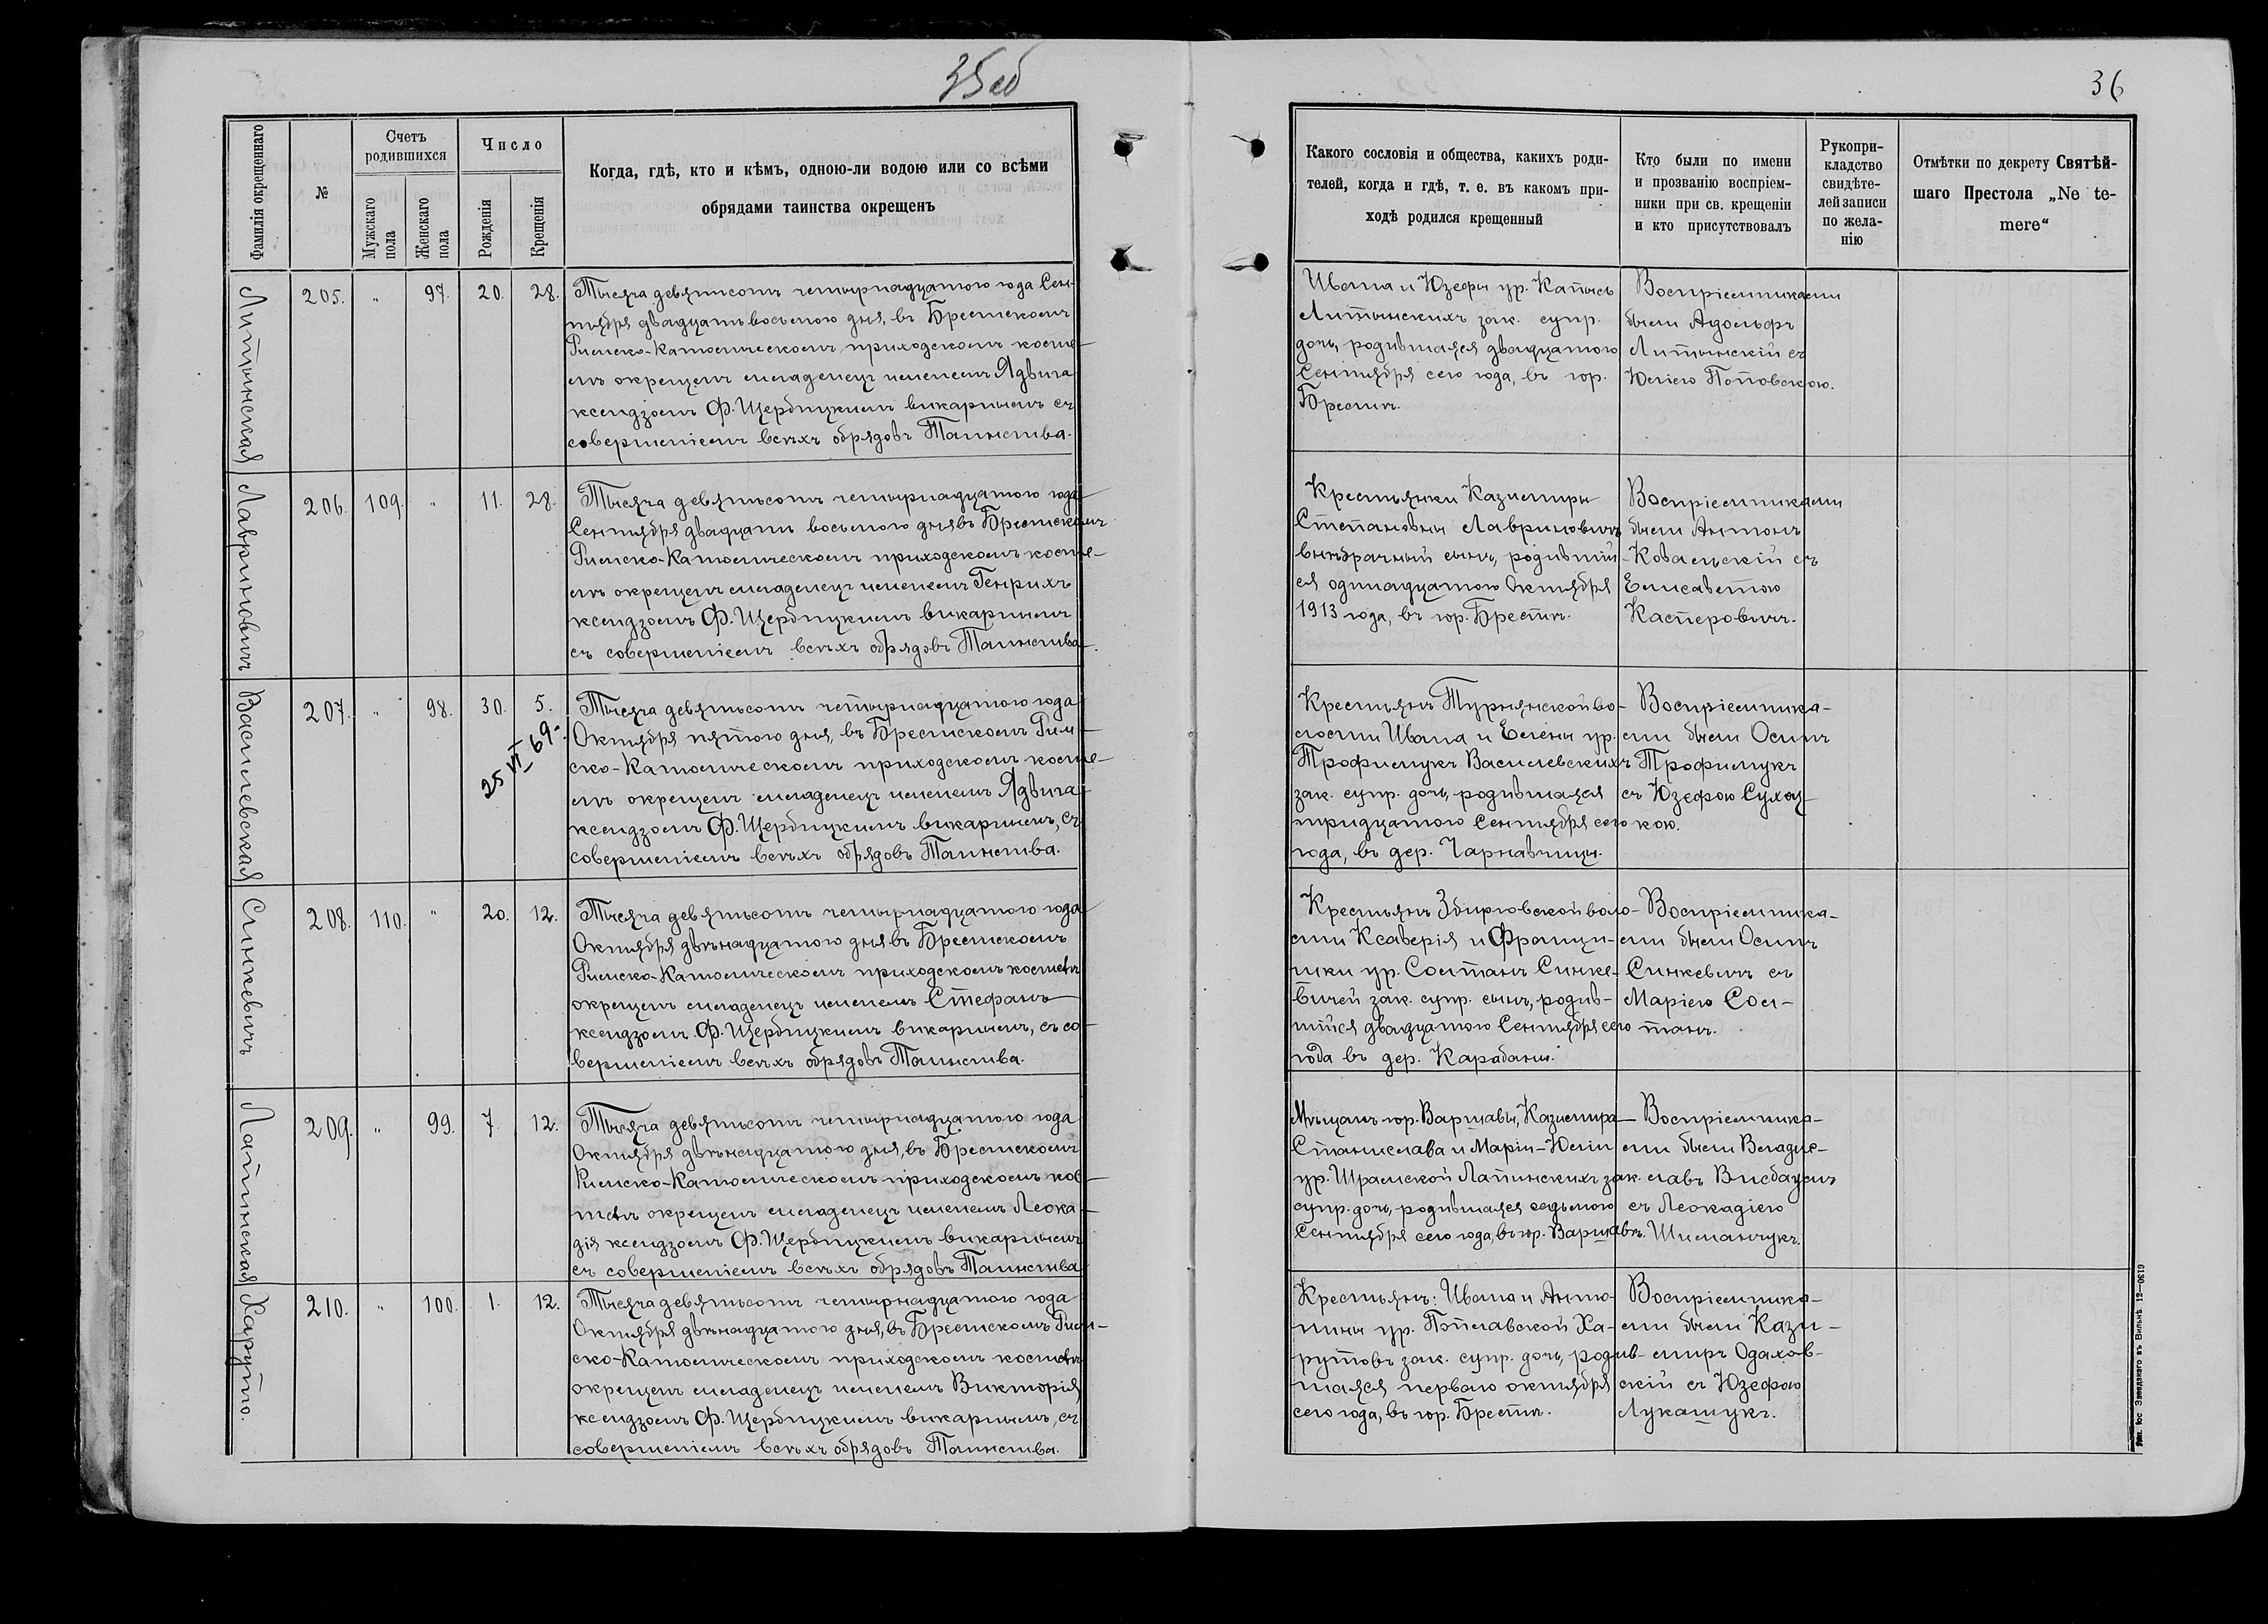 35об
Фамилія окрещеннаго
№
Счетъ
родившихся
Мужскаго
пола
Женскаго
пола
Число
Рожденія
Крещенія
Когда, гдѣ, кто и кѣмъ, одною-ли водою или со всѣми
обрядами таинства окрещенъ
Литынская
205. " 97. 20. 28.
Тысяча девятьсотъ четырнадцатого года Сен-
тября двадцать восьмого дня, въ Брестскомъ
Римско-Католическомъ приходскомъ косте-
лѣ окрещенъ младенецъ именемъ Ядвига
ксендзомъ Ф. Щербицкимъ викарнымъ съ
совершеніемъ всѣхъ обрядовъ Таинства.
Лавриновичъ
206. 109. " 11. 28.
Тысяча девятьсотъ четырнадцатого года
Сентября двадцать восьмого дня въ Брестскомъ
Римско-Католическомъ приходскомъ косте-
лѣ окрещенъ младенецъ именемъ Генрихъ
ксендзомъ Ф. Щербицкимъ викарнымъ
съ совершеніемъ всѣхъ обрядовъ Таинства.
Василевская
207. " 98. 30. 5.
25 VI 69.
Тысяча девятьсотъ четырнадцатого года
Октября пятого дня, въ Брестскомъ Рим-
ско-Католическомъ приходскомъ косте-
лѣ окрещенъ младенецъ именемъ Ядвига
ксендзомъ Ф. Щербицкимъ викарнымъ, съ
совершеніемъ всѣхъ обрядовъ Таинства.
Синкевичъ
208. 110. " 20. 12.
Тысяча девятьсотъ четырнадцатого года
Октября двѣнадцатого дня въ Брестскомъ
Римско-Католическомъ приходскомъ костелѣ
окрещенъ младенецъ именемъ Стефанъ
ксендзомъ Ф. Щербицкимъ викарнымъ, съ со-
вершеніемъ всѣхъ обрядовъ Таинства.
Лапинская
209. " 99. 7. 12.
Тысяча девятьсотъ четырнадцатого года
Октября двѣнадцатого дня, въ Брестскомъ
Римско-Католическомъ приходскомъ кос-
телѣ окрещенъ младенецъ именемъ Леока-
дія ксендзомъ Ф. Щербицкимъ викарнымъ
съ совершеніемъ всѣхъ обрядовъ Таинства
Харуто.
210. " 100. 1. 12.
Тысяча девятьсотъ четырнадцатого года
Октября двѣнадцатого дня, въ Брестскомъ Рим-
ско-Католическомъ приходскомъ костелѣ
окрещенъ младенецъ именемъ Викторія
ксендзомъ Ф. Щербицкимъ викарнымъ, съ
совершеніемъ всѣхъ обрядовъ Таинства.
36
Какого сословія и общества, какихъ роди-
телей, когда и гдѣ, т. е. въ какомъ при-
ходѣ родился крещенный
Кто были по имени
и прозванію воспріем-
ники при св. крещеніи
и кто присутствовалъ
Рукопри-
кладство
свидѣте-
лей записи
по жела-
нію
Отмѣтки по декрету Святѣй-
шаго Престола „Ne te-
mere“
Ивана и Юзефы ур. Капысь
Литынскихъ зак. супр.
дочь, родившаяся двадцатого
Сентября сего года, въ гор.
Брестѣ.
Воспріемниками
были Адольфъ
Литынскій съ
Юліею Поповскою.
Крестьянки Казимиры
Степановны Лавриновичъ
внѣбрачный сынъ, родившій-
ся одинадцатого Октября
1913 года, въ гор. Брестѣ.
Воспріемниками
были Антонъ
Ковальскій съ
Елисаветою
Касперовичъ.
Крестьянъ Турнянской во-
лости Ивана и Елены ур.
Трофимукъ Василевскихъ
зак. супр. дочь, родившаяся
тридцатого Сентября сего
года, въ дер. Чарнавчицы.
Воспріемника-
ми были Осипъ
Трофимукъ
съ Юзефою Сухоц-
кою.
Крестьянъ Збироговской воло-
сти Ксаверія и Франци-
шки ур. Солтанъ Синке-
вичей зак. супр. сынъ, родив-
шійся двадцатого Сентября сего
года въ дер. Карабаны.
Воспріемника-
ми были Осипъ
Синкевичъ съ
Маріею Сол-
танъ.
Мѣщанъ гор. Варшавы, Казимира-
Станислава и Маріи-Юліи
ур. Шрамской Лапинскихъ зак.
супр. дочь, родившаяся седьмого
Сентября сего года, въ гор. Варшавѣ.
Воспріемника-
ми были Владис-
лавъ Висбаумъ
съ Леокадіею
Шиманчукъ.
Крестьянъ: Ивана и Анто-
нины ур. Поплавской Ха-
рутовъ зак. супр. дочь, родив-
шаяся первого октября
сего года, въ гор. Брестѣ.
Воспріемника-
ми были Кази-
миръ Одахов-
скій съ Юзефою
Лукашукъ.
Тип. Іос. Завадзкаго въ Вильнѣ. 12—0619